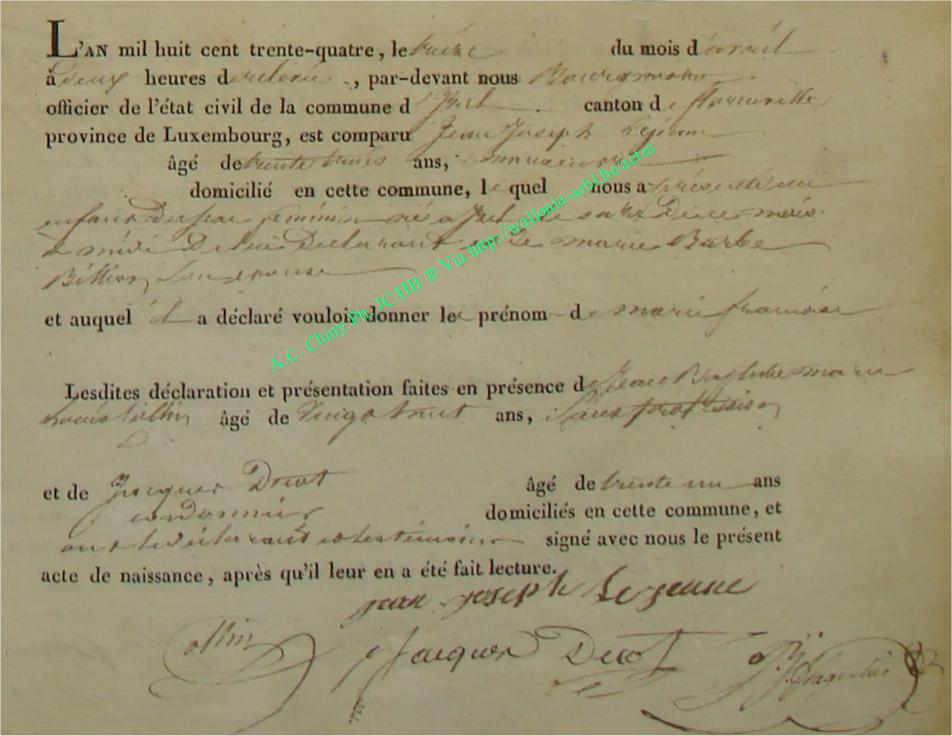 L'AN mil huit cent trente-quatre, le treize du mois d'avril
à deux heures de relevée, par-devant nous Bourgmestre
officier de l'état civil de la commune d'Izel canton de florenville
province de Luxembourg, est comparu Jean Joseph Lejeune
âgé de trente trois ans, menuisier
domicilié en cette commune, lequel nous a présenté un
enfant du sexe féminin né a Izel le onze de ce mois
a midi De lui Déclarant et de marie Barbe
Billion, Son epouse
et auquel il a déclaré vouloir donner le prénom de marie francoise
Lesdites déclaration et présentation faites en présence de Jean Baptiste marie
Louis Collin âgé de vingt huit ans, Sans profession
et de Jacques Drot âgé de trente un ans
cordonnier domiciliés en cette commune, et
ont le déclarant et les témoins signé avec nous le présent
acte de naissance, après qu'il leur en a été fait lecture.
jean joseph Lejeune
ollin Jacques Drot
A.C. Chiny Ph. JCAHB ® Via http://wallonia-asbl.be/actes